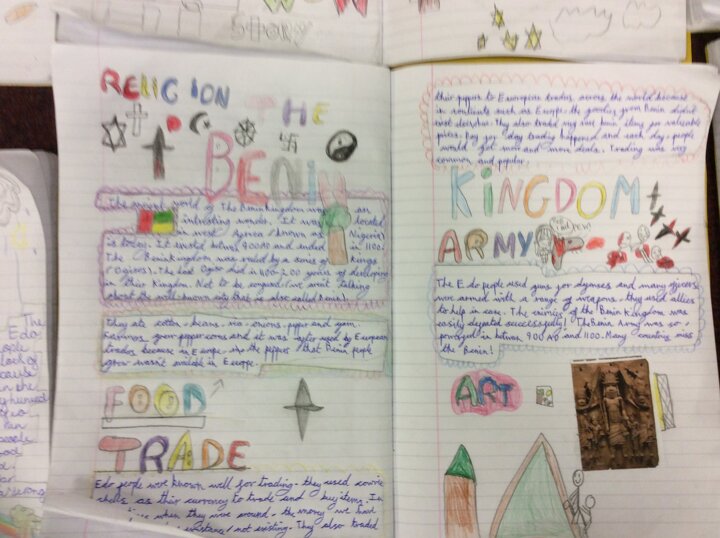 STORY
RELIGION
THE
BENIN
The ancient world of The Benin Kingdom was an
interesting world. It was located
in west Africa (known as Nigeria)
is today. It existed between 900AD and ended in 1100.
The Benin Kingdom was ruled by a series of kings
(Ogisos). The last Ogiso died in 1100, 200 years of developing
in their Kingdom. Not to be confused, we aren't talking
about the well-known city that is also called Benin!
They ate cotton, beans, rice, onions, pepper and yam.
Farmers grow pepper corns and it was
traded by European
traders because in Europe, the peppers that Benin people
grow wasn't available in Europe.
FOOD
TRADE
Edo people were known well for trading. they used cowrie
shells as their currency to trade and buy items. In
time when they were around, the money we had
existence/not existing. They also traded
their peppers to European traders, across the world because
in continents such as Europe, the goodies from Benin didn't
exist elsewhere. They also traded
items for valuable
prices. Day for day trading happened and each day, people
would get more and more deals. Trading was very
common and popular.
KINGDOM
ARMY
The Edo people used guns for defenses and many officers
were armed with a range of weapons. they used allies
to help in case. The enemies of the Benin Kingdom was
easily defeated successfully! The Benin Army was so
powerful in between 900 AD and 1100. Many countries miss
the Benin!
ART
The
Edo
people
lack of
in the